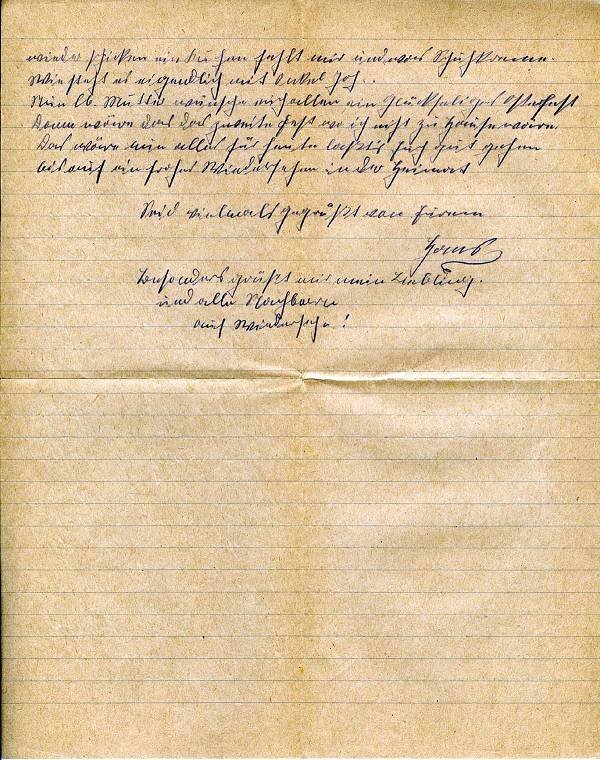 wieder schicken ein Kuchen fehlt mir und was Schuhkreme.
Wie steht es eigendlich mit Onkel Joh..
Nun lb. Mutter wünsche euch allen ein Glückseliges Osterfest
Dann wäre das das zweite Fest wo ich nicht zu Hause wäre.
Das wäre nun alles für heute laßt's euch gut gehen
bis auf ein frohes Wiedersehen in der Heimat
Seid vielmals gegrüßt von Eurem
Hans
Besonders grüßt mir mein Liebling.
und alle Nachbarn
auf Wiedersehn!